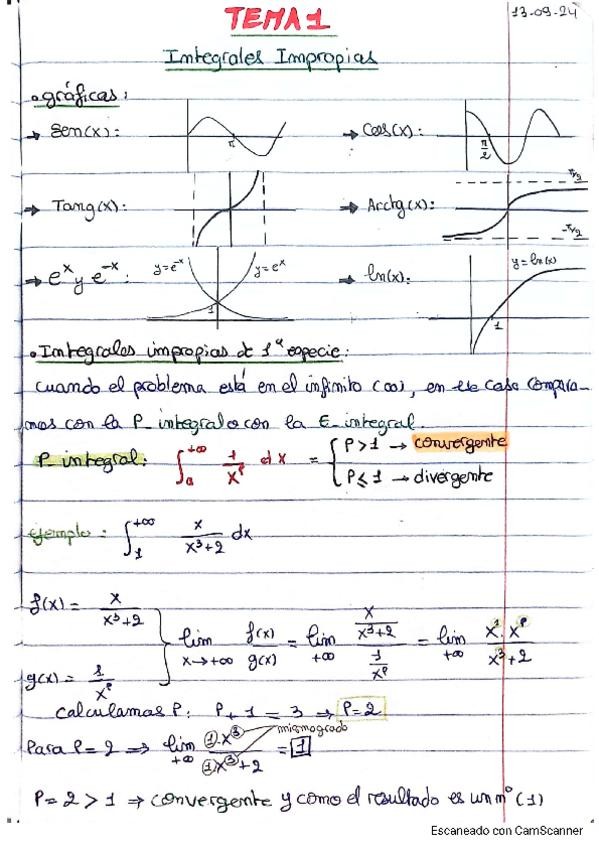 TEMA 1
13-09-24
Integrales Impropias
• gráficas:
→ Sen(x): π
→ Cos(x): π/2
→ Tang(x):
→ Arctg(x): π/2 -π/2
→ eˣ y e⁻ˣ: y=e⁻ˣ y=eˣ 1
→ ln(x): y=ln(x) 1
• Integrales impropias de 1ª especie:
cuando el problema está en el infinito (∞), en ese caso compara-
mos con la P_integral o con la E_integral.
P_integral: ∫ₐ^+∞ 1/xᴾ dx = { P>1 → convergente
P≤1 → divergente
ejemplo: ∫₁^+∞ x/(x³+2) dx
f(x) = x/(x³+2)
g(x) = 1/xᴾ
lim x→+∞ f(x)/g(x) = lim +∞ (x/(x³+2))/(1/xᴾ) = lim +∞ (x¹·xᴾ)/(x³+2)
calculamos P: P+1 = 3 → P=2
Para P=2 ⇒ lim +∞ (1·x³)/(1x³+2) = 1 mismo grado
P=2>1 ⇒ convergente y como el resultado es un nº (1)
Escaneado con CamScanner